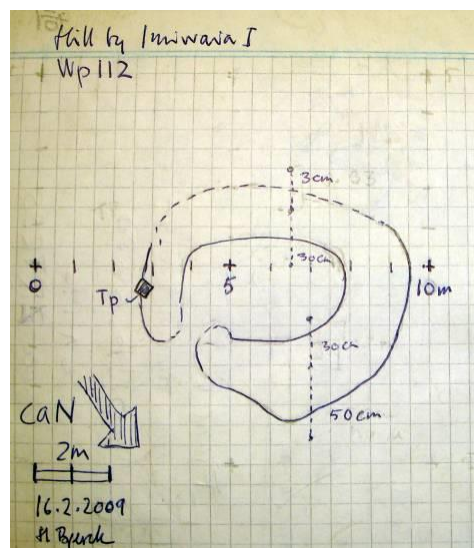 Hill by Imiwaia I
Wp 112
3cm
30cm
0
5
10m
Tp
30cm
50cm
caN
2m
16.2.2009
H Bjerck